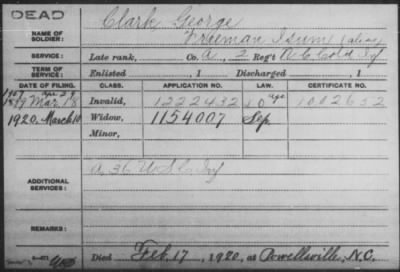 DEAD
Clark George
NAME OF SOLDIER:
Freeman Isum (alias)
SERVICE:
Late rank, Co. A, 2 Reg't N.C. Cold Inf
TERM OF SERVICE:
Enlisted , 1 Discharged , 1
DATE OF FILING. CLASS. APPLICATION NO. LAW. CERTIFICATE NO.
1907 apr 29
1899 Mar. 18 Invalid, 1222432 1002652
1920. March 10 Widow, 1154007 Sep.
Minor,
ADDITIONAL SERVICES:
A, 36 U.S.C. Inf
REMARKS:
Died Feb. 17, 1920, at Powellsville, N.C.